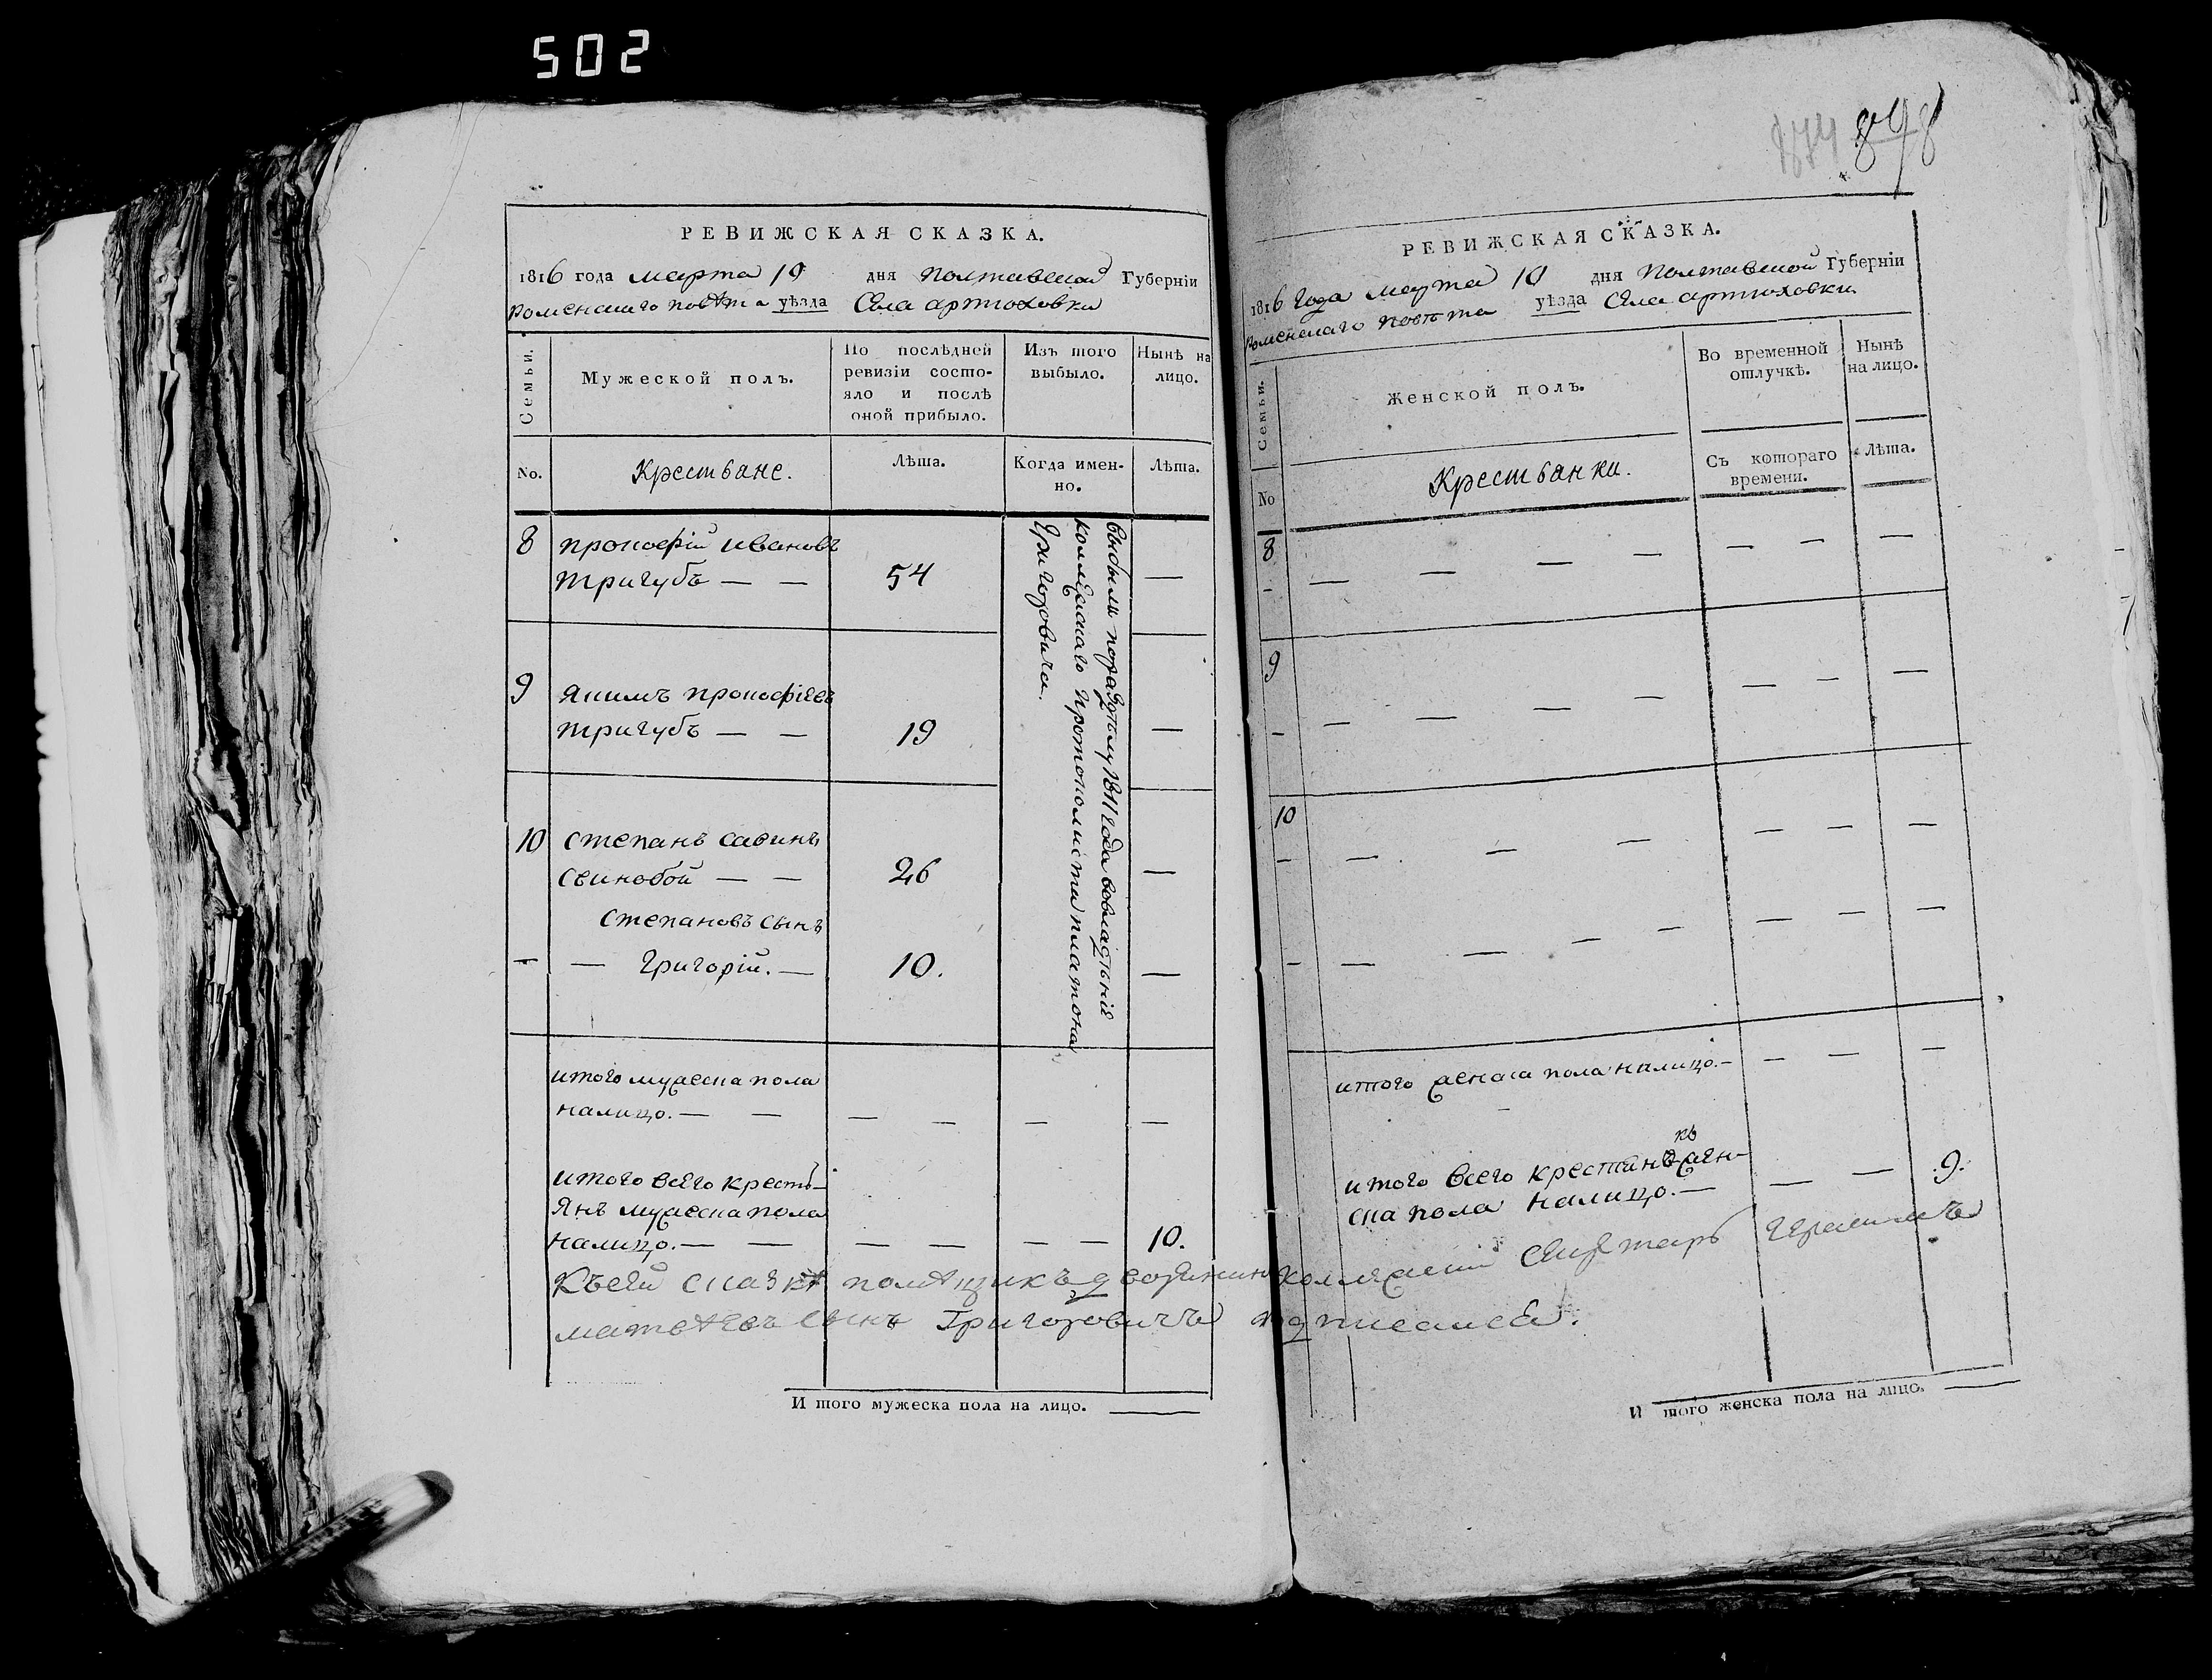 502
РЕВИЖСКАЯ СКАЗКА.
1816 года марта 10 дня Полтавской Губерніи
Роменскаго повѣта уѣзда Села артюховки
Семьи.
Мужеской полъ.
По послѣдней ревизіи состо-
яло и послѣ
оной прибыло.
Изъ того
выбыло.
Нынѣ на
лицо.
No.
Крестьяне.
Лѣта.
Когда имен-
но.
Лѣта.
8 прокофій ивановъ
тригубъ — — 54 —
9 якимъ прокофіевъ
тригубъ — — 19 —
10 степанъ савинъ
свинобой — — 26 —
степановъ сынъ
— — григорій. — 10. —
выбыли поразделу 1811 года вовладѣніе
коллежскаго протоколиста платона
григоровича.
итого мужеска пола
налицо. — — — — — —
итого всего кресть-
янъ мужеска пола
налицо. — — — — — — 10.
Късей сказкѣ помѣщикъ дворянинъ коллежский секретарь Герасимъ
матвѣевъ сынъ Григоровичъ подписался.
И того мужеска пола на лицо.
874 898
РЕВИЖСКАЯ СКАЗКА.
1816 года марта 10 дня Полтавской Губерніи
Роменскаго повѣта уѣзда Села артюховки
Семьи.
Женской полъ.
Во временной
отлучкѣ.
Нынѣ
на лицо.
No
Крестьянки.
Съ котораго
времени.
Лѣта.
8
9
10
итого женска пола налицо. — — — —
итого всего крестьянокъ жен-
ска пола налицо. — — — 9.
И того женска пола на лицо.